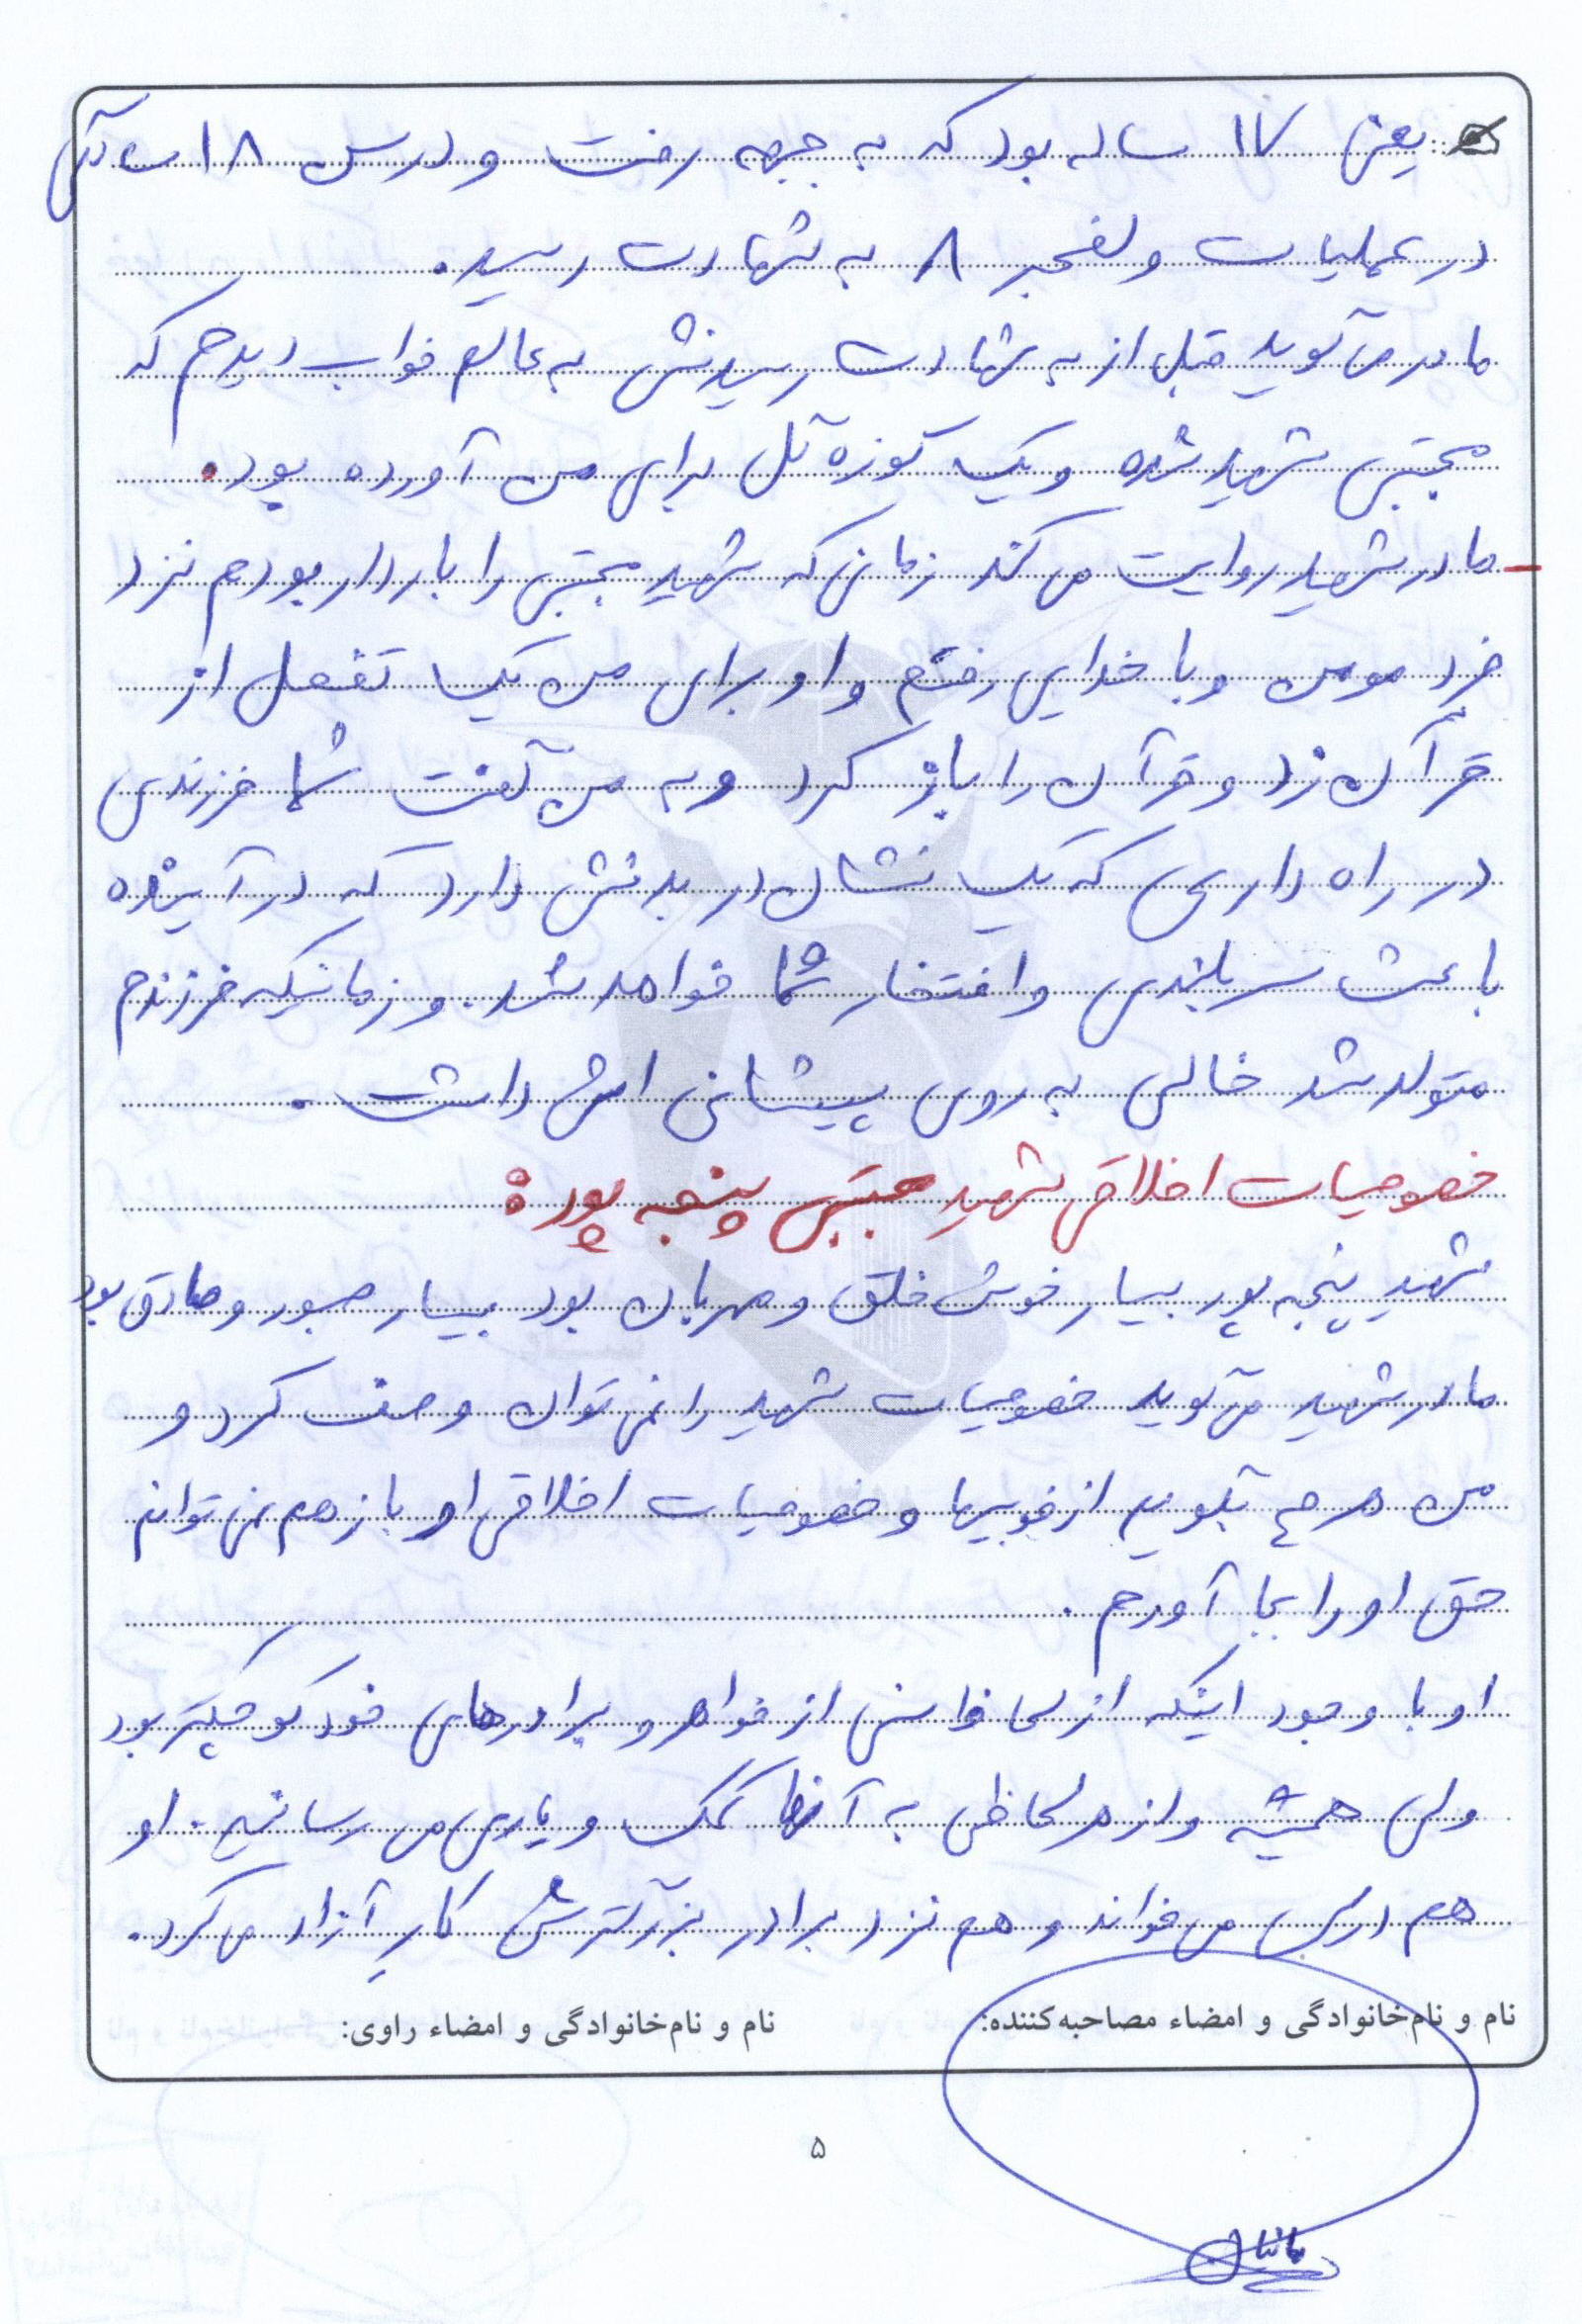 یعنی ۱۷ ساله بود که به جبهه رفت و در سن ۱۸ سالگی
در عملیات ولفجر ۸ به شهادت رسید.
مادر می گوید قبل از به شهادت رسیدنش به عالم خواب دیدم که
مجتبی شهید شده و یک کوزه گل برای من آورده بود.
مادر شهید روایت می کند زمانی که شهید مجتبی را باردار بودم نزد
فرد مومن و با خدایی رفتم و او برای من یک تفعل از
قرآن زد و قرآن را باز کرد و به من گفت شما فرزندی
در راه داری که یک نشان در بدنش دارد که در آینده
باعث سربلندی و افتخار شما خواهد شد. و زمانیکه فرزندم
متولد شد خالی به روی پیشانی اش داشت.
خصوصیات اخلاقی شهید مجتبی پنجه پور:
شهید پنجه پور بسیار خوش خلق و مهربان بود بسیار صبور و صادق بود
مادر شهید می گوید خصوصیات شهید را نمی توان وصف کرد و
من هر چه بگویم از خوبیها و خصوصیات اخلاقی او باز هم نمی توانم
حق او را بجا آورم.
او با وجود اینکه از لحاظ سنی از خواهر و برادرهای خود کوچکتر بود
ولی همیشه و از هر لحاظی به آنها کمک و یاری می رسانید. او
هم درس می خواند و هم نزد برادر بزرگترش کار آزاد می کرد.
نام و نام‌خانوادگی و امضاء مصاحبه‌کننده:
نام و نام‌خانوادگی و امضاء راوی:
۵